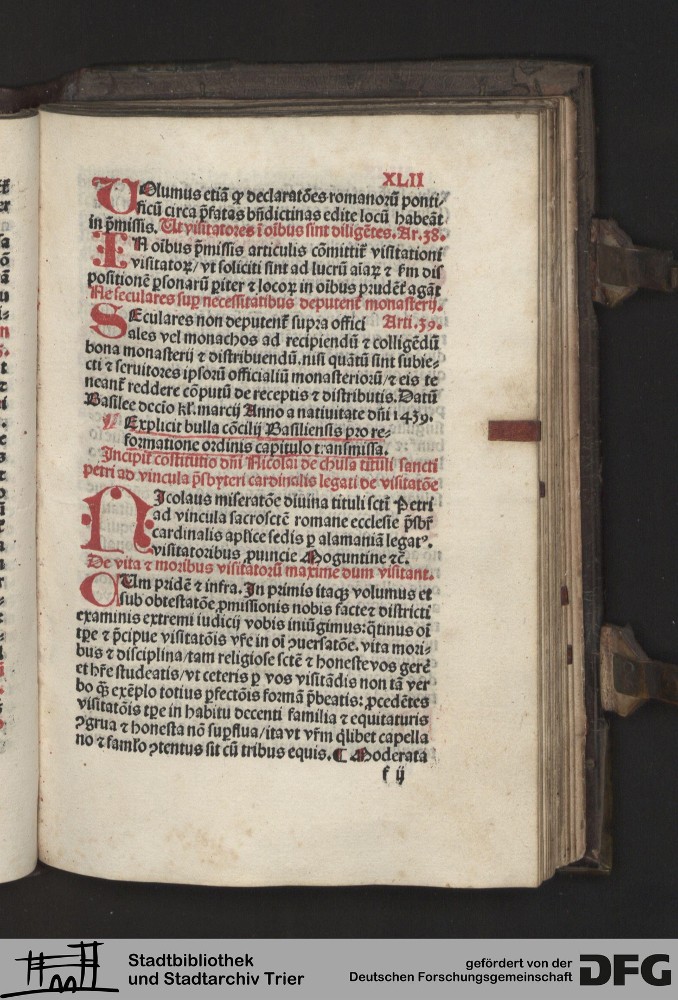 XLII
VOlumus etiã ꝙ declaratões romanorũ ponti-
ficũ circa p̃fatas bñdictinas edite locũ habeãt
in p̃missis. Ut visitatores ĩ oĩbus sint diligẽtes. Ar. 38.
IN oĩbus p̃missis articulis cõmittit᷑ visitationi
visitatoꝝ/ vt soliciti sint ad lucrũ aĩaꝝ ⁊ fm dis
positionẽ ꝑsonarũ ꝑiter ⁊ locoꝝ in oĩbus prudẽt᷑ agãt
Ne seculares suꝑ necessitatibus deputent᷑ monasterij.
SEculares non deputent᷑ supra offici Arti. 39.
ales vel monachos ad recipiendũ ⁊ colligẽdũ
bona monasterij ⁊ distribuendũ. nisi quãtũ sint subie-
cti ⁊ seruitores ipsorũ officialiũ monasteriorũ/ ⁊ eis te
neant᷑ reddere cõputũ de receptis ⁊ distributis. Datũ
Basilee decĩo kl̃. marcij Anno a natiuitate dñi 1439.
Explicit bulla cõcilij Basiliensis pro re-
formatione ordinis capitulo transmissa.
Incipit cõstitutio dñi Nicolai de chusa tituli sancti
petri ad vincula p̃sbyteri cardinalis legati de visitatõe
NIcolaus miseratõne diuina tituli sctĩ Petri
ad vincula sacrosctẽ romane ecclesie p̃sbr̃
cardinalis apl̃ice sedis ꝑ alamaniã legatꝰ.
visitatoribus ꝓuincie Moguntine ⁊c̃.
De vita ⁊ moribus visitatorũ maxime dum visitant.
CUm pridẽ ⁊ infra. In primis itaqꝫ volumus et
sub obtestatõe ꝓmissionis nobis facte ⁊ districti
examinis extremi iudicij vobis iniũgimus: q̃tinus oĩ
tꝑe ⁊ p̃cipue visitatõis vr̃e in oĩ ꝯuersatõe. vita mori-
bus ⁊ disciplina/ tam religiose sctẽ ⁊ honeste vos gerẽ
et hr̃e studeatis/ vt ceteris ꝑ vos visitãdis non tã ver
bo qꝫ exẽplo totius ꝑfectõis formã p̃beatis: ꝓcedẽtes
visitatõis tꝑe in habitu decenti familia ⁊ equitaturis
ꝯgrua ⁊ honesta nõ suꝑflua/ ita vt vr̃m q̃libet capella
no ⁊ famĩlo ꝯtentus sit cũ tribus equis. ¶ Moderata
f ij
Stadtbibliothek
und Stadtarchiv Trier
gefördert von der
Deutschen Forschungsgemeinschaft
DFG